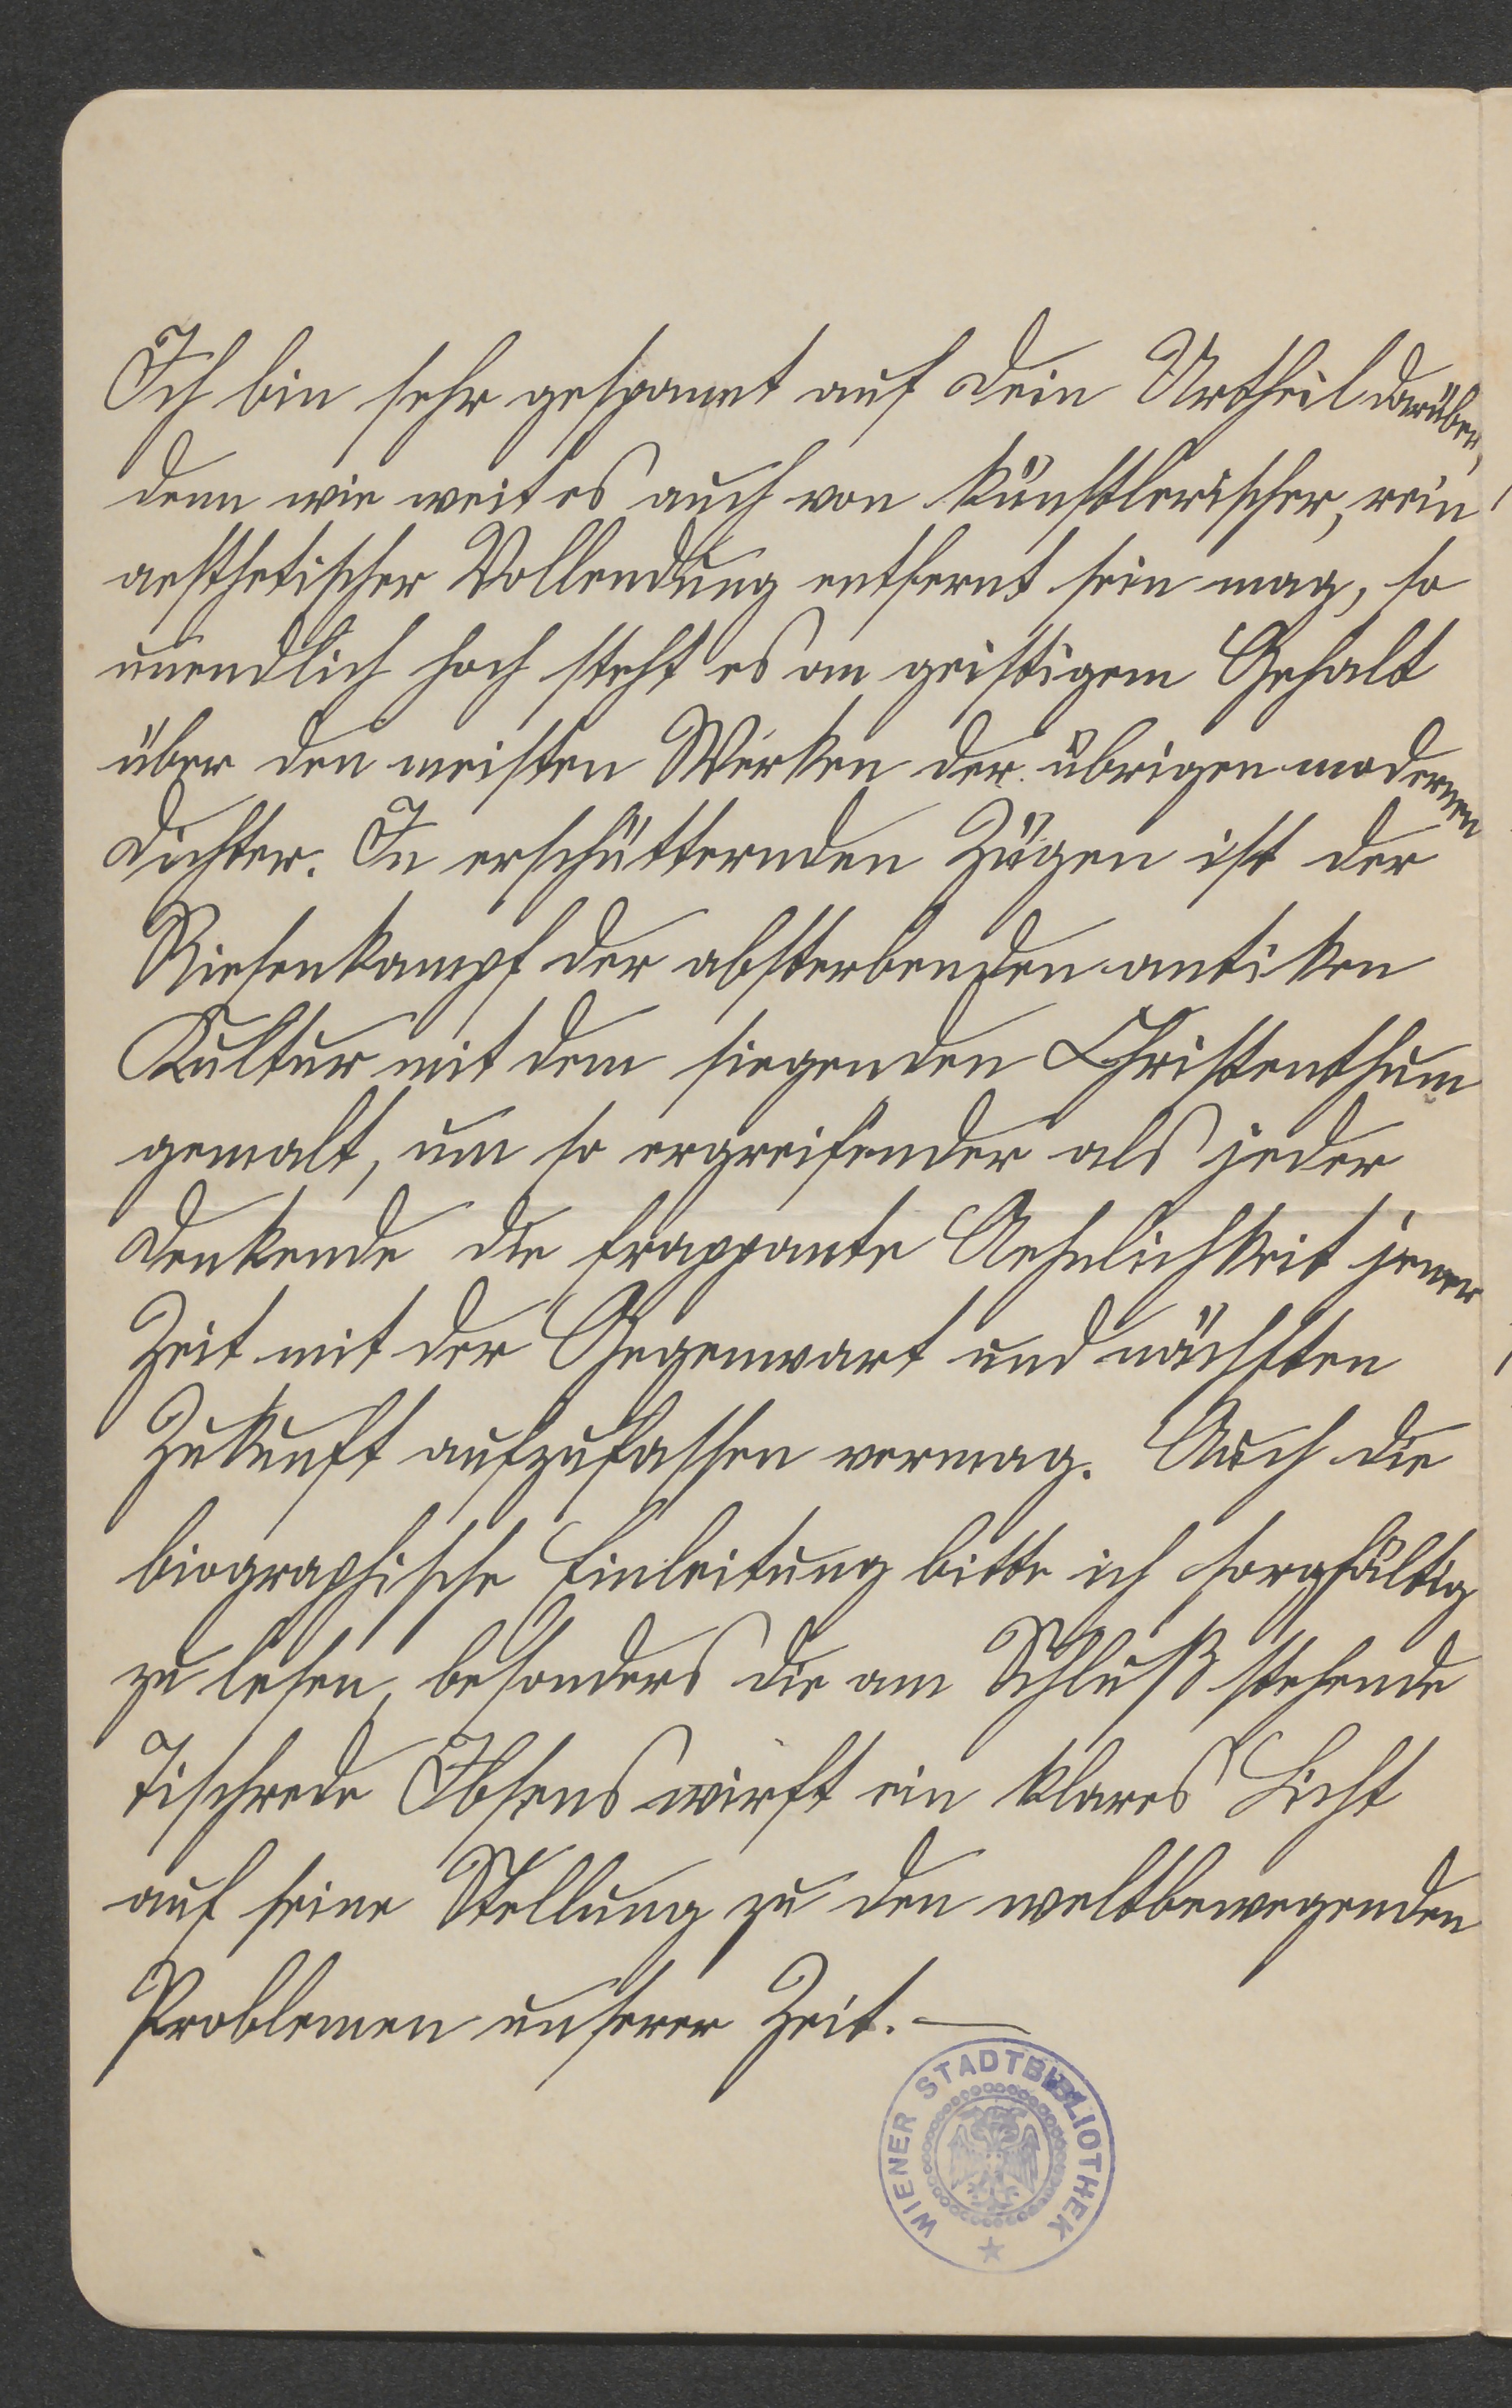 Ich bin sehr gespannt auf Dein Urtheil darüber,
denn wie weit es auch von künstlerischer, rein
aesthetischer Vollendung entfernt sein mag, so
unendlich hoch steht es an geistigem Gehalt
über den meisten Werken der übrigen modernen
Dichter. In erschütternden Zügen ist der
Riesenkampf der absterbenden antiken
Kultur mit dem siegenden Christenthum
gemalt, um so ergreifender als jeder
Denkende die frappante Aehnlichkeit jener
Zeit mit der Gegenwart und nächsten
Zukunft aufzufassen vermag. Auch die
biographische Einleitung bitte ich sorgfältig
zu lesen, besonders die am Schluß stehende
Tischrede Ibsens wirft ein klares Licht
auf seine Stellung zu den weltbewegenden
Problemen unserer Zeit. —
WIENER STADTBIBLIOTHEK